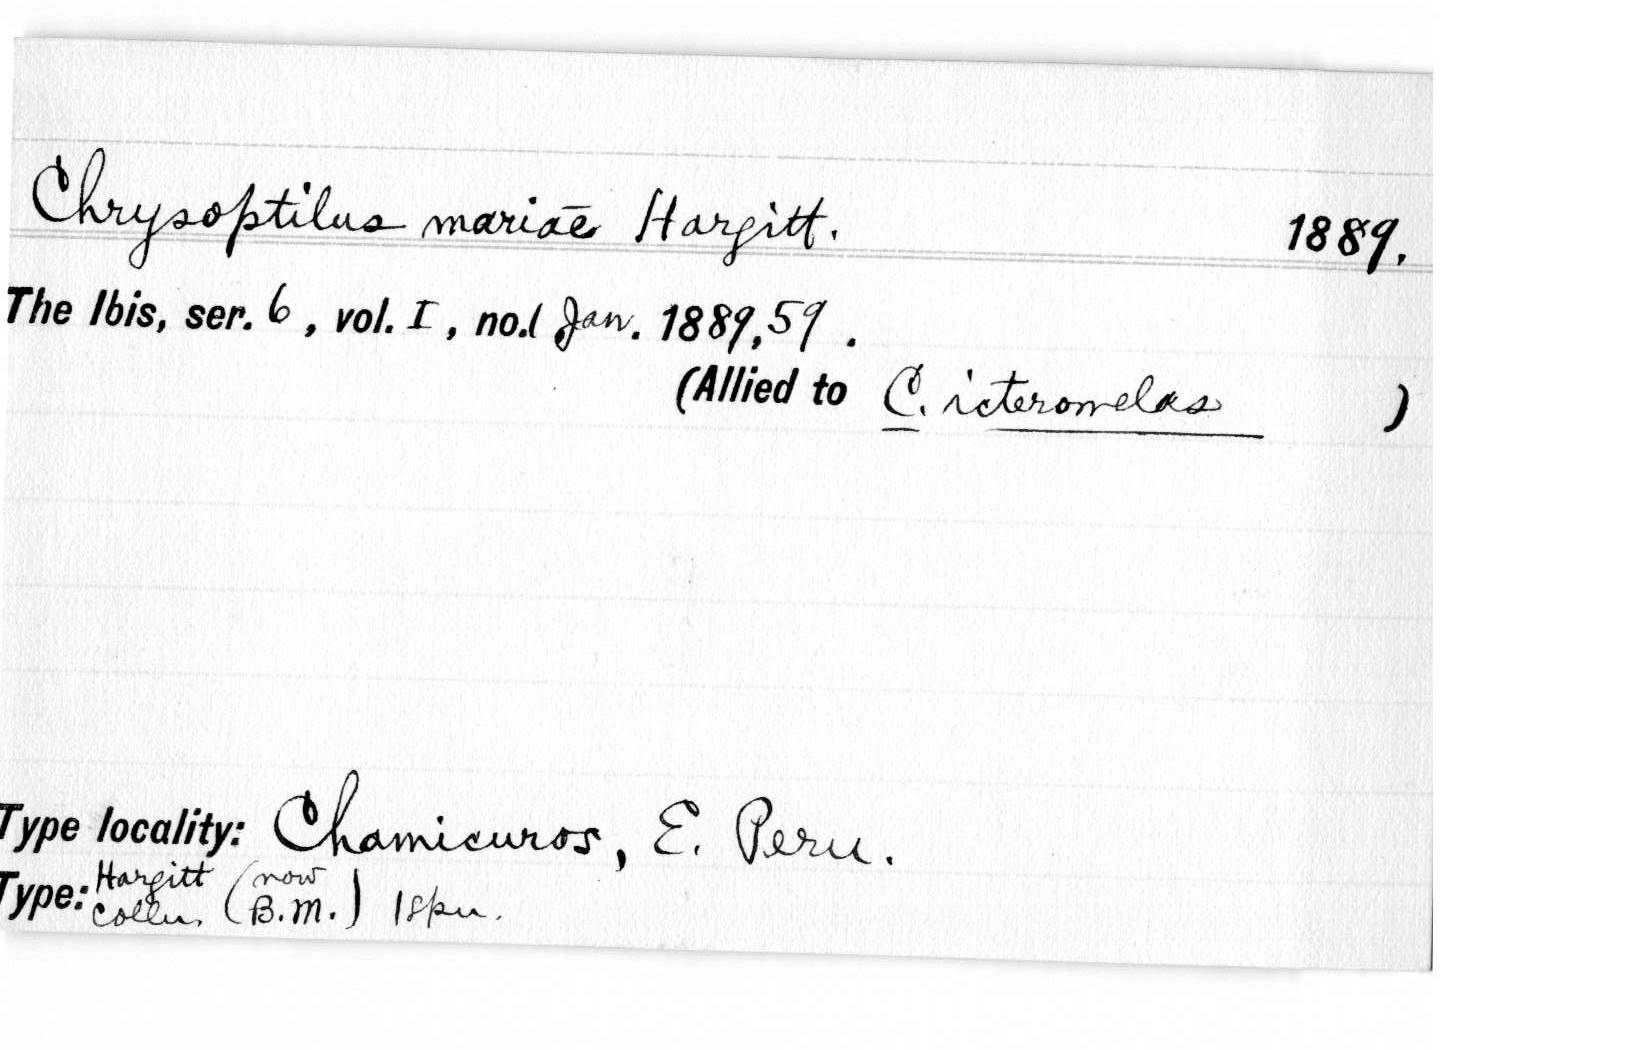 Chrysoptilus mariae Hargitt. 1889.
The Ibis, ser. 6, vol. I, no.1 Jan. 1889, 59.
(Allied to C. icteromelas )
Type locality: Chamicuros, E. Peru.
Type: Hargitt Colln. (now B.M.) 1 spn.